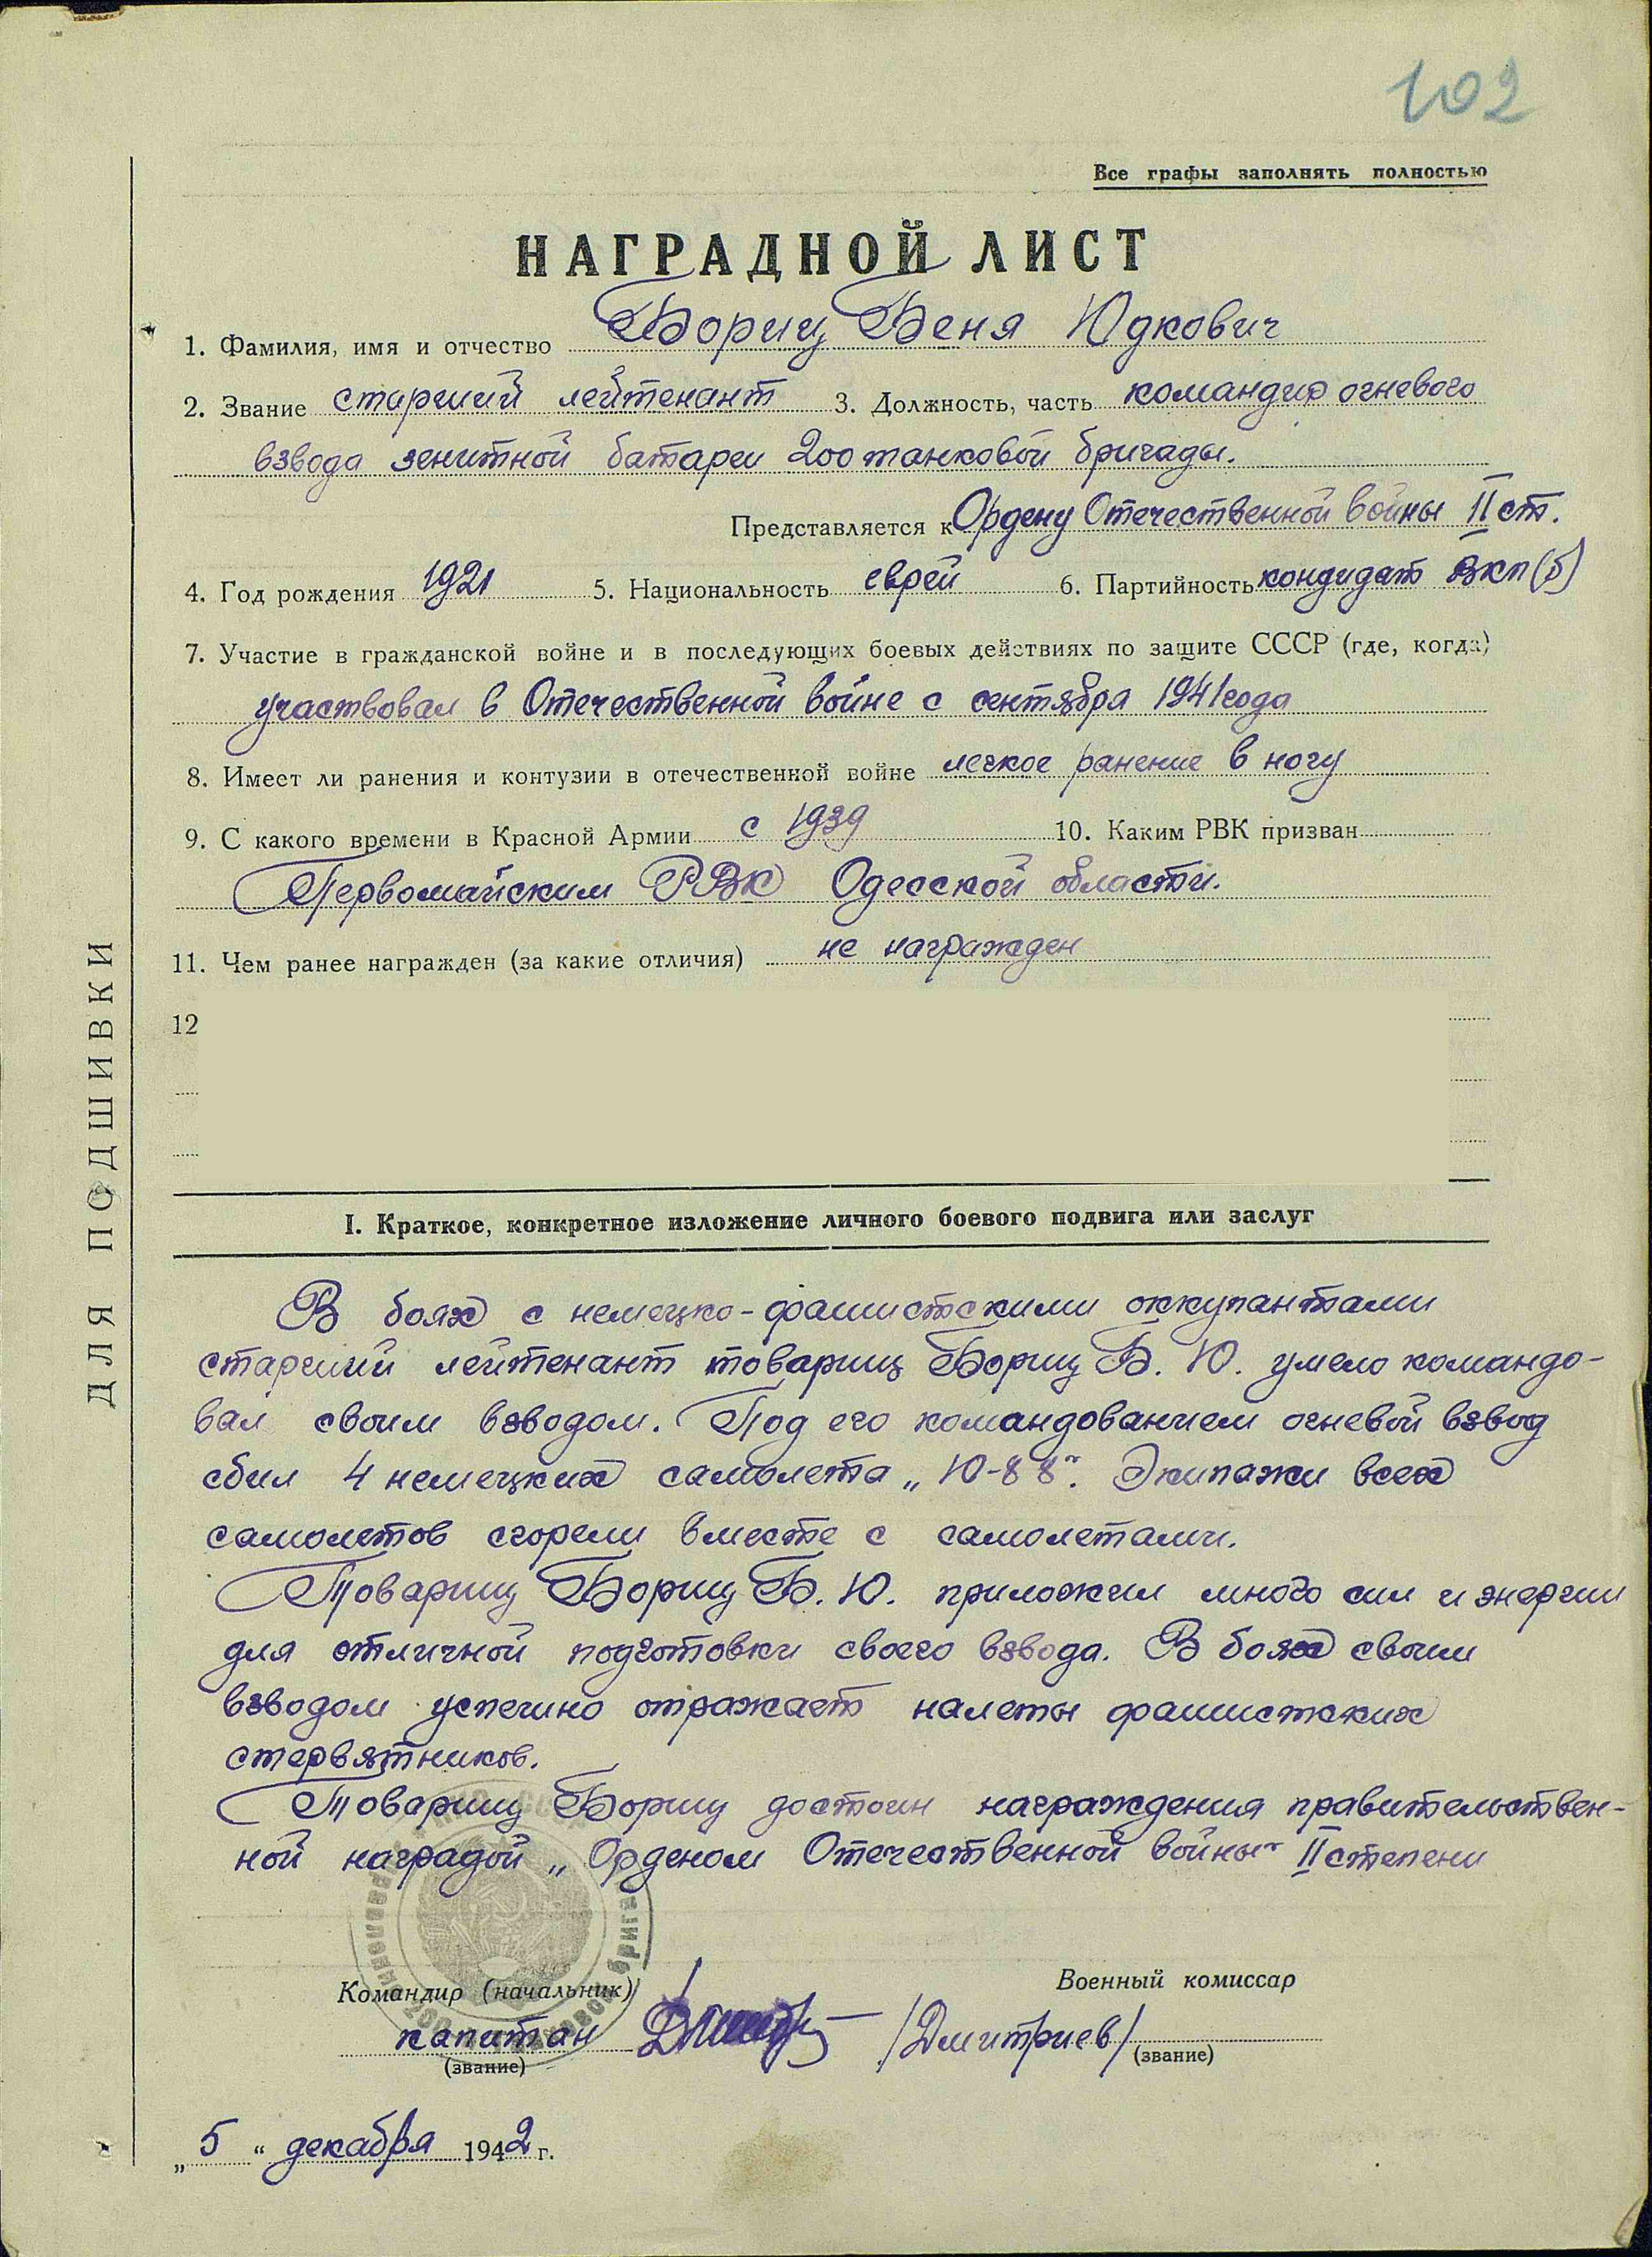 102
Все графы заполнять полностью
НАГРАДНОЙ ЛИСТ
1. Фамилия, имя и отчество Борищ Беня Юдкович
2. Звание старший лейтенант 3. Должность, часть командир огневого
взвода зенитной батареи 200 танковой бригады.
Представляется к Ордену Отечественной войны II ст.
4. Год рождения 1921 5. Национальность еврей 6. Партийность кондидат ВКП(б)
7. Участие в гражданской войне и в последующих боевых действиях по защите СССР (где, когда)
участвовал в Отечественной войне с сентября 1941 года
8. Имеет ли ранения и контузии в отечественной войне легкое ранение в ногу
9. С какого времени в Красной Армии с 1939 10. Каким РВК призван
Первомайским РВК Одесской области.
11. Чем ранее награжден (за какие отличия) не награжден
12
I. Краткое, конкретное изложение личного боевого подвига или заслуг
В боях с немецко-фашистскими оккупантами
старший лейтенант товарищ Борищ Б. Ю. умело командо-
вал своим взводом. Под его командованием огневой взвод
сбил 4 немецких самолета „Ю-88". Экипажи всех
самолетов сгорели вместе с самолетами.
Товарищ Борищ Б. Ю. приложил много сил и энергии
для отличной подготовки своего взвода. В боях своим
взводом успешно отражает налеты фашистских
стервятников.
Товарищ Борищ достоин награждения правительствен-
ной наградой „Орденом Отечественной войны" II степени
Командир (начальник) Военный комиссар
капитан /Дмитриев/
(звание) (звание)
„5" декабря 1942 г.
ДЛЯ ПОДШИВКИ